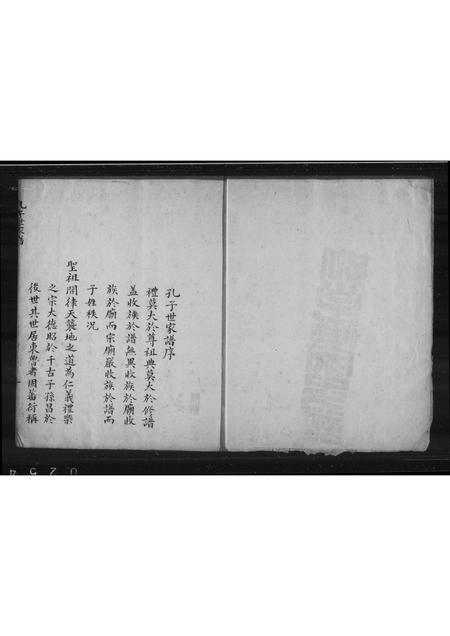 孔子世家譜序
禮莫大於尊祖典莫大於修譜
蓋收族於譜無異收族於廟收
族於廟而宗廟嚴收族於譜而
子姓秩況
聖祖開律天襲地之道為仁義禮樂
之宗大德昭於千古子孫昌於
後世其世居東魯者固蕃衍稱
孔子世家譜
0254